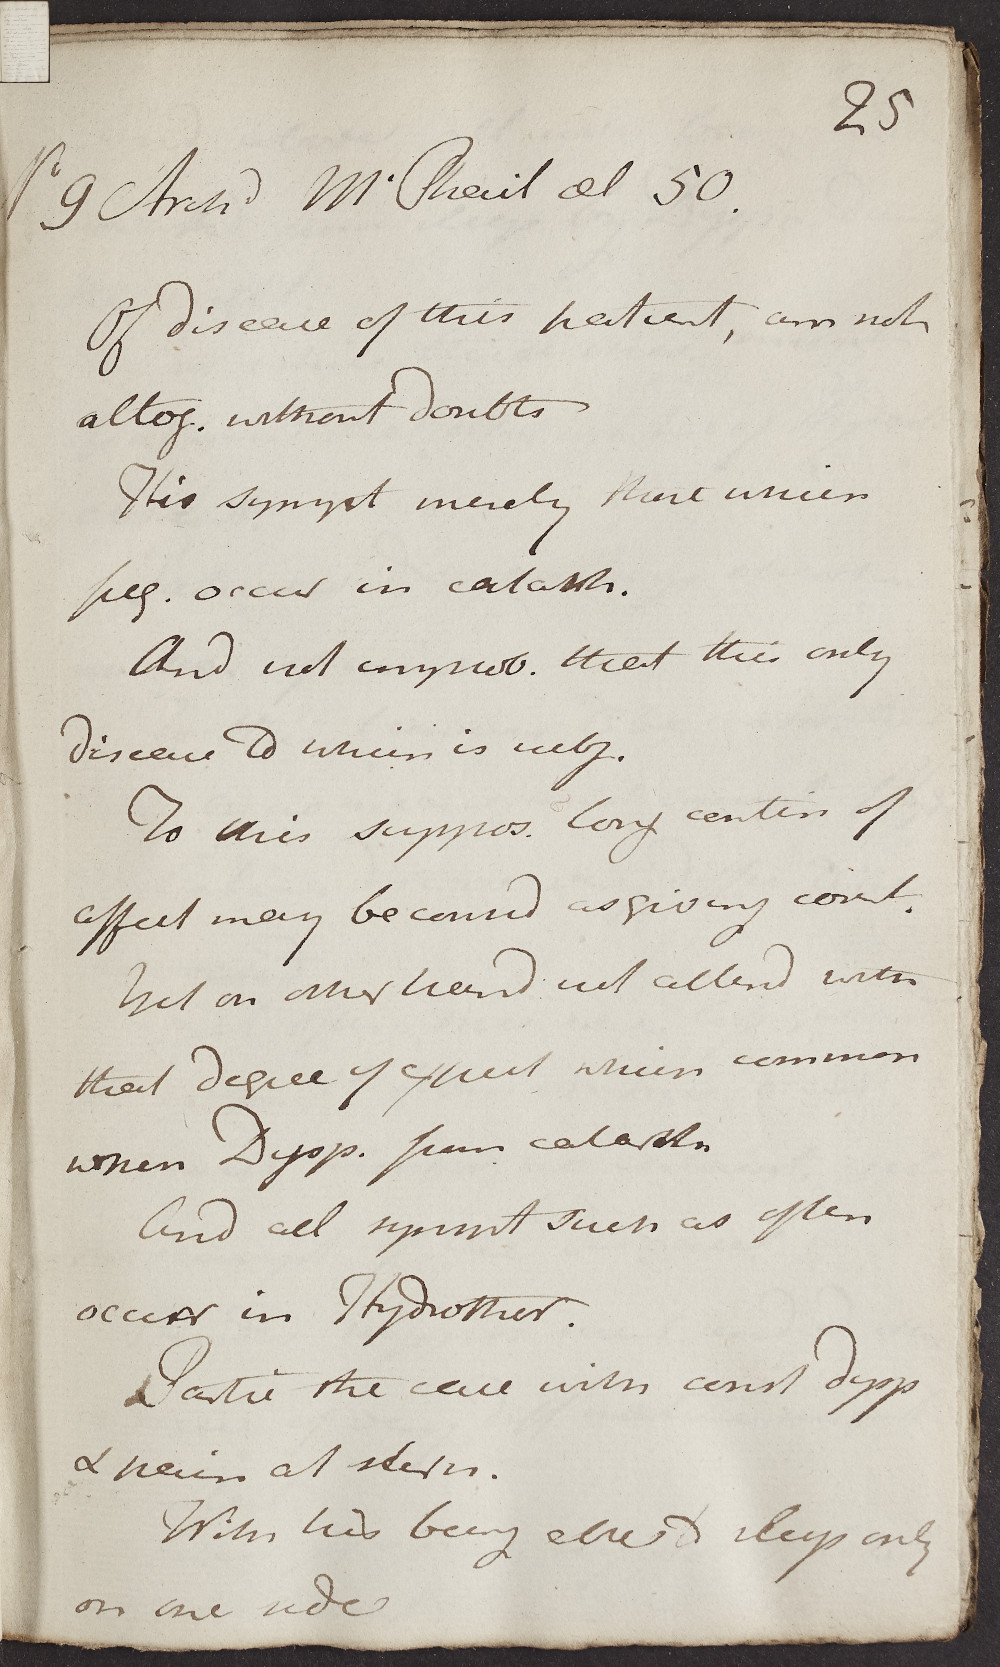 25
No 9 Archd McPhail æt 50.
Of disease of this patient, am not
altog. without doubts
His sympt merely those which
freq. occur in catarrh.
And not improb. that this only
disease to which is subj.
To this suppos. long contin of
affect may be consid as giving count.
Yet on other hand not attend with
that degree of expect which common
when Dysp. from catarrh
And all sympt such as often
occur in Hydrothor.
Partic the case with const dysp
& pain at stern.
With his being able to sleep only
on one side